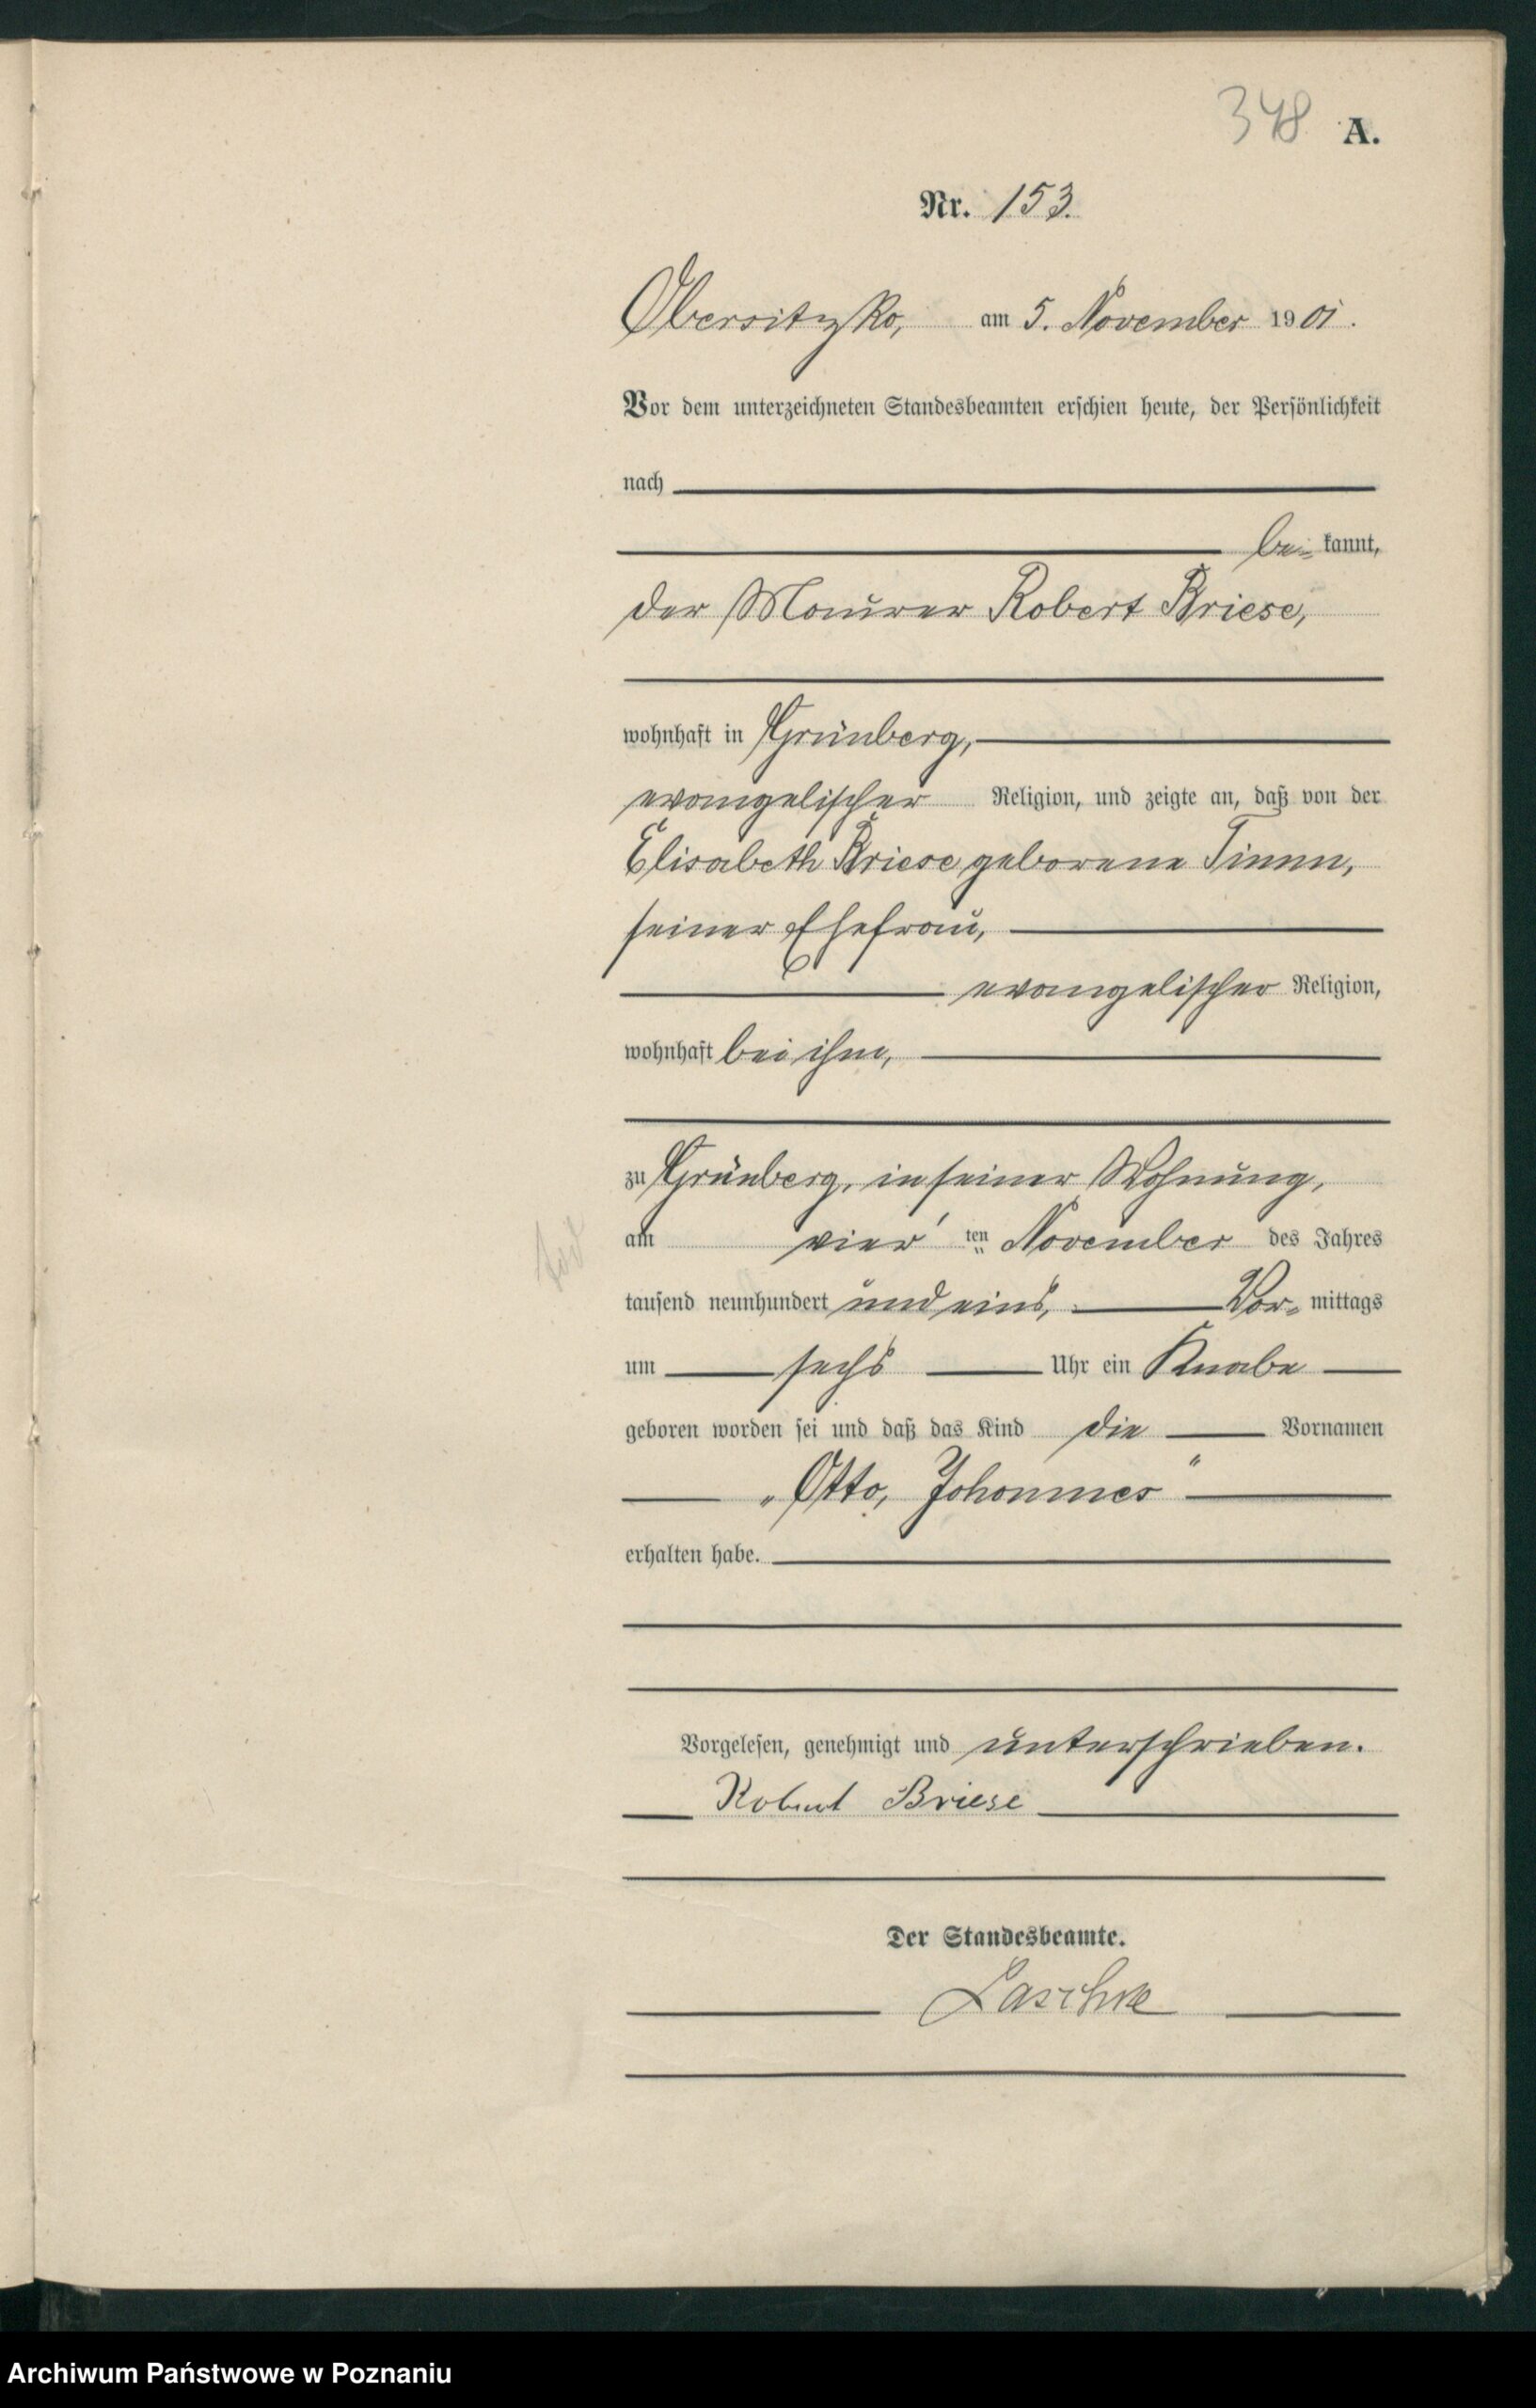 348 A.
Nr. 153.
Obersitzko, am 5. November 1901.
Vor dem unterzeichneten Standesbeamten erschien heute, der Persönlichkeit
nach
be- kannt,
der Maurer Robert Briese,
wohnhaft in Grünberg,
evangelischer Religion, und zeigte an, daß von der
Elisabeth Briese geborene Timm,
seiner Ehefrau,
evangelischer Religion,
wohnhaft bei ihm,
zu Grünberg, in seiner Wohnung,
am vier ten November des Jahres
tausend neunhundert und eins, Vor- mittags
um sechs Uhr ein Knabe
geboren worden sei und daß das Kind die Vornamen
„Otto, Johannes"
erhalten habe.
Vorgelesen, genehmigt und unterschrieben.
Robert Briese
Der Standesbeamte.
Laschke
Archiwum Państwowe w Poznaniu